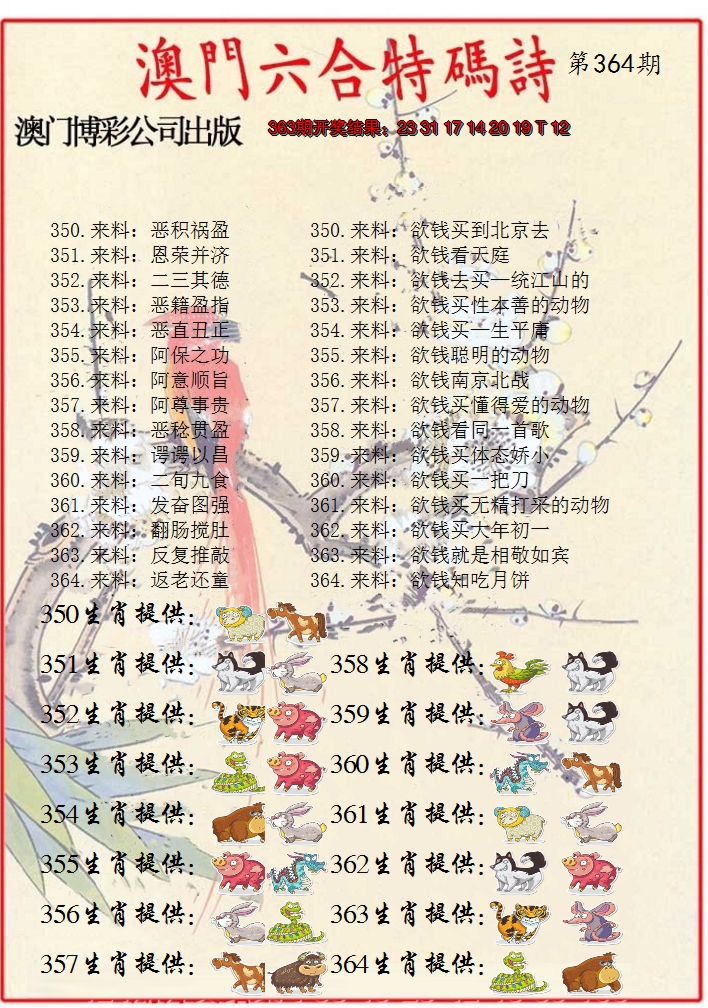 澳門六合特碼詩 第364期
澳门博彩公司出版 363期开奖结果：23 31 17 14 20 19 T 12
350.来料：恶积祸盈 350.来料：欲钱买到北京去
351.来料：恩荣并济 351.来料：欲钱看天庭
352.来料：二三其德 352.来料：欲钱去买一统江山的
353.来料：恶籍盈指 353.来料：欲钱买性本善的动物
354.来料：恶直丑正 354.来料：欲钱买一生平庸
355.来料：阿保之功 355.来料：欲钱聪明的动物
356.来料：阿意顺旨 356.来料：欲钱南京北战
357.来料：阿尊事贵 357.来料：欲钱买懂得爱的动物
358.来料：恶稔贯盈 358.来料：欲钱看同一首歌
359.来料：谔谔以昌 359.来料：欲钱买体态娇小
360.来料：二旬九食 360.来料：欲钱买一把刀
361.来料：发奋图强 361.来料：欲钱买无精打采的动物
362.来料：翻肠搅肚 362.来料：欲钱买大年初一
363.来料：反复推敲 363.来料：欲钱就是相敬如宾
364.来料：返老还童 364.来料：欲钱知吃月饼
350生肖提供：
351生肖提供： 358生肖提供：
352生肖提供： 359生肖提供：
353生肖提供： 360生肖提供：
354生肖提供： 361生肖提供：
355生肖提供： 362生肖提供：
356生肖提供： 363生肖提供：
357生肖提供： 364生肖提供：